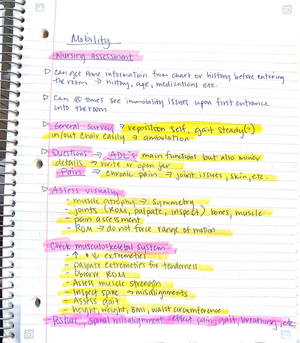 Mobility
Nursing Assessment
▷ Can get some information from chart or history before entering
the room → history, age, medications etc.
▷ Can @ times see immobility issues upon first entrance
into the room
▷ General Survey → reposition self, gait steady(?)
in/out chair easily → ambulation
▷ Questions → ADL's main functions but also minor
details → write or open jar
Pain → chronic pains → joint issues, skin, etc.
▷ Assess visually
- muscle atrophy → symmetry
- joints (ROM, palpate, inspect) bones, muscle
- pain assessment
- ROM → do not force range of motion
Check musculoskeletal system
- ↑ & ↓ extremeties
- palpate extremeties for tenderness
- Observe ROM
- Assess muscle strength
- Inspect spine → misalignments
- Assess gait
- height, weight, BMI, waist circumference
Posture, spinal misalignment effect pain, gait, breathing, etc.